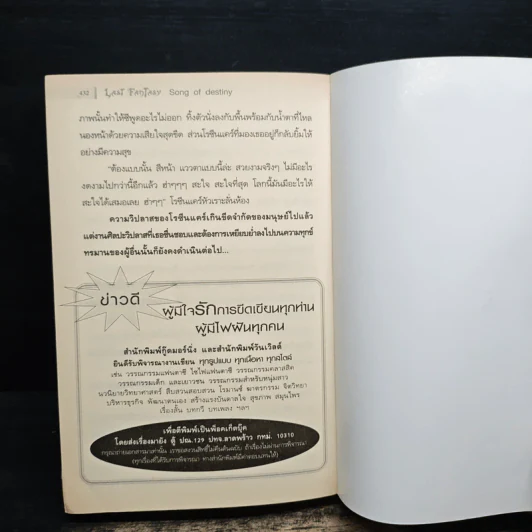 432 | Last Fantasy Song of destiny
ภาพนั้นทำให้ชีพูดอะไรไม่ออก ทิ้งตัวนั่งลงกับพื้นพร้อมกับน้ำตาที่ไหล
นองหน้าด้วยความเสียใจสุดขีด ส่วนโรซีนแคร์ที่มองเธออยู่ก็กลับยิ้มให้
อย่างมีความสุข
"ต้องแบบนั้น สีหน้า แววตาแบบนี้ล่ะ สวยงามจริงๆ ไม่มีอะไร
งดงามไปกว่านี้อีกแล้ว ฮ่าๆๆๆ สะใจ สะใจที่สุด โลกนี้มันมีอะไรให้
สะใจได้เสมอเลย ฮ่าๆๆ" โรซีนแคร์หัวเราะลั่นห้อง
ความวิปลาสของโรซีนแคร์เกินขีดจำกัดของมนุษย์ไปแล้ว
แต่งานศิลปะวิปลาสที่เธอชื่นชอบและต้องการเหยียบย่ำลงไปบนความทุกข์
ทรมานของผู้อื่นนั้นก็ยังคงดำเนินต่อไป...
ข่าวดี
ผู้มีใจรักการขีดเขียนทุกท่าน
ผู้มีไฟฝันทุกคน
สำนักพิมพ์กู๊ดมอร์นิ่ง และสำนักพิมพ์วันเวิลด์
ยินดีรับพิจารณางานเขียน ทุกรูปแบบ ทุกเนื้อหา ทุกสไตล์
เช่น วรรณกรรมแฟนตาซี ไซไฟแฟนตาซี วรรณกรรมคลาสสิค
วรรณกรรมเด็ก และเยาวชน วรรณกรรมสำหรับหนุ่มสาว
นวนิยายวิทยาศาสตร์ สืบสวนสอบสวน โรมานซ์ ฆาตกรรม จิตวิทยา
บริหารธุรกิจ พัฒนาตนเอง สร้างแรงบันดาลใจ สุขภาพ สมุนไพร
เรื่องสั้น บทกวี บทเพลง ฯลฯ
เพื่อตีพิมพ์เป็นพ็อคเก็ตบุ๊ค
โดยส่งเรื่องมายัง ตู้ ปณ.129 ปทจ.ลาดพร้าว กทม. 10310
(กรุณาถ่ายเอกสารมาเท่านั้น เราขอสงวนสิทธิ์ไม่คืนต้นฉบับ ถ้าเรื่องไม่ผ่านการพิจารณา)
(ทุกเรื่องที่ได้รับการพิจารณา ทางสำนักพิมพ์มีค่าตอบแทนให้)